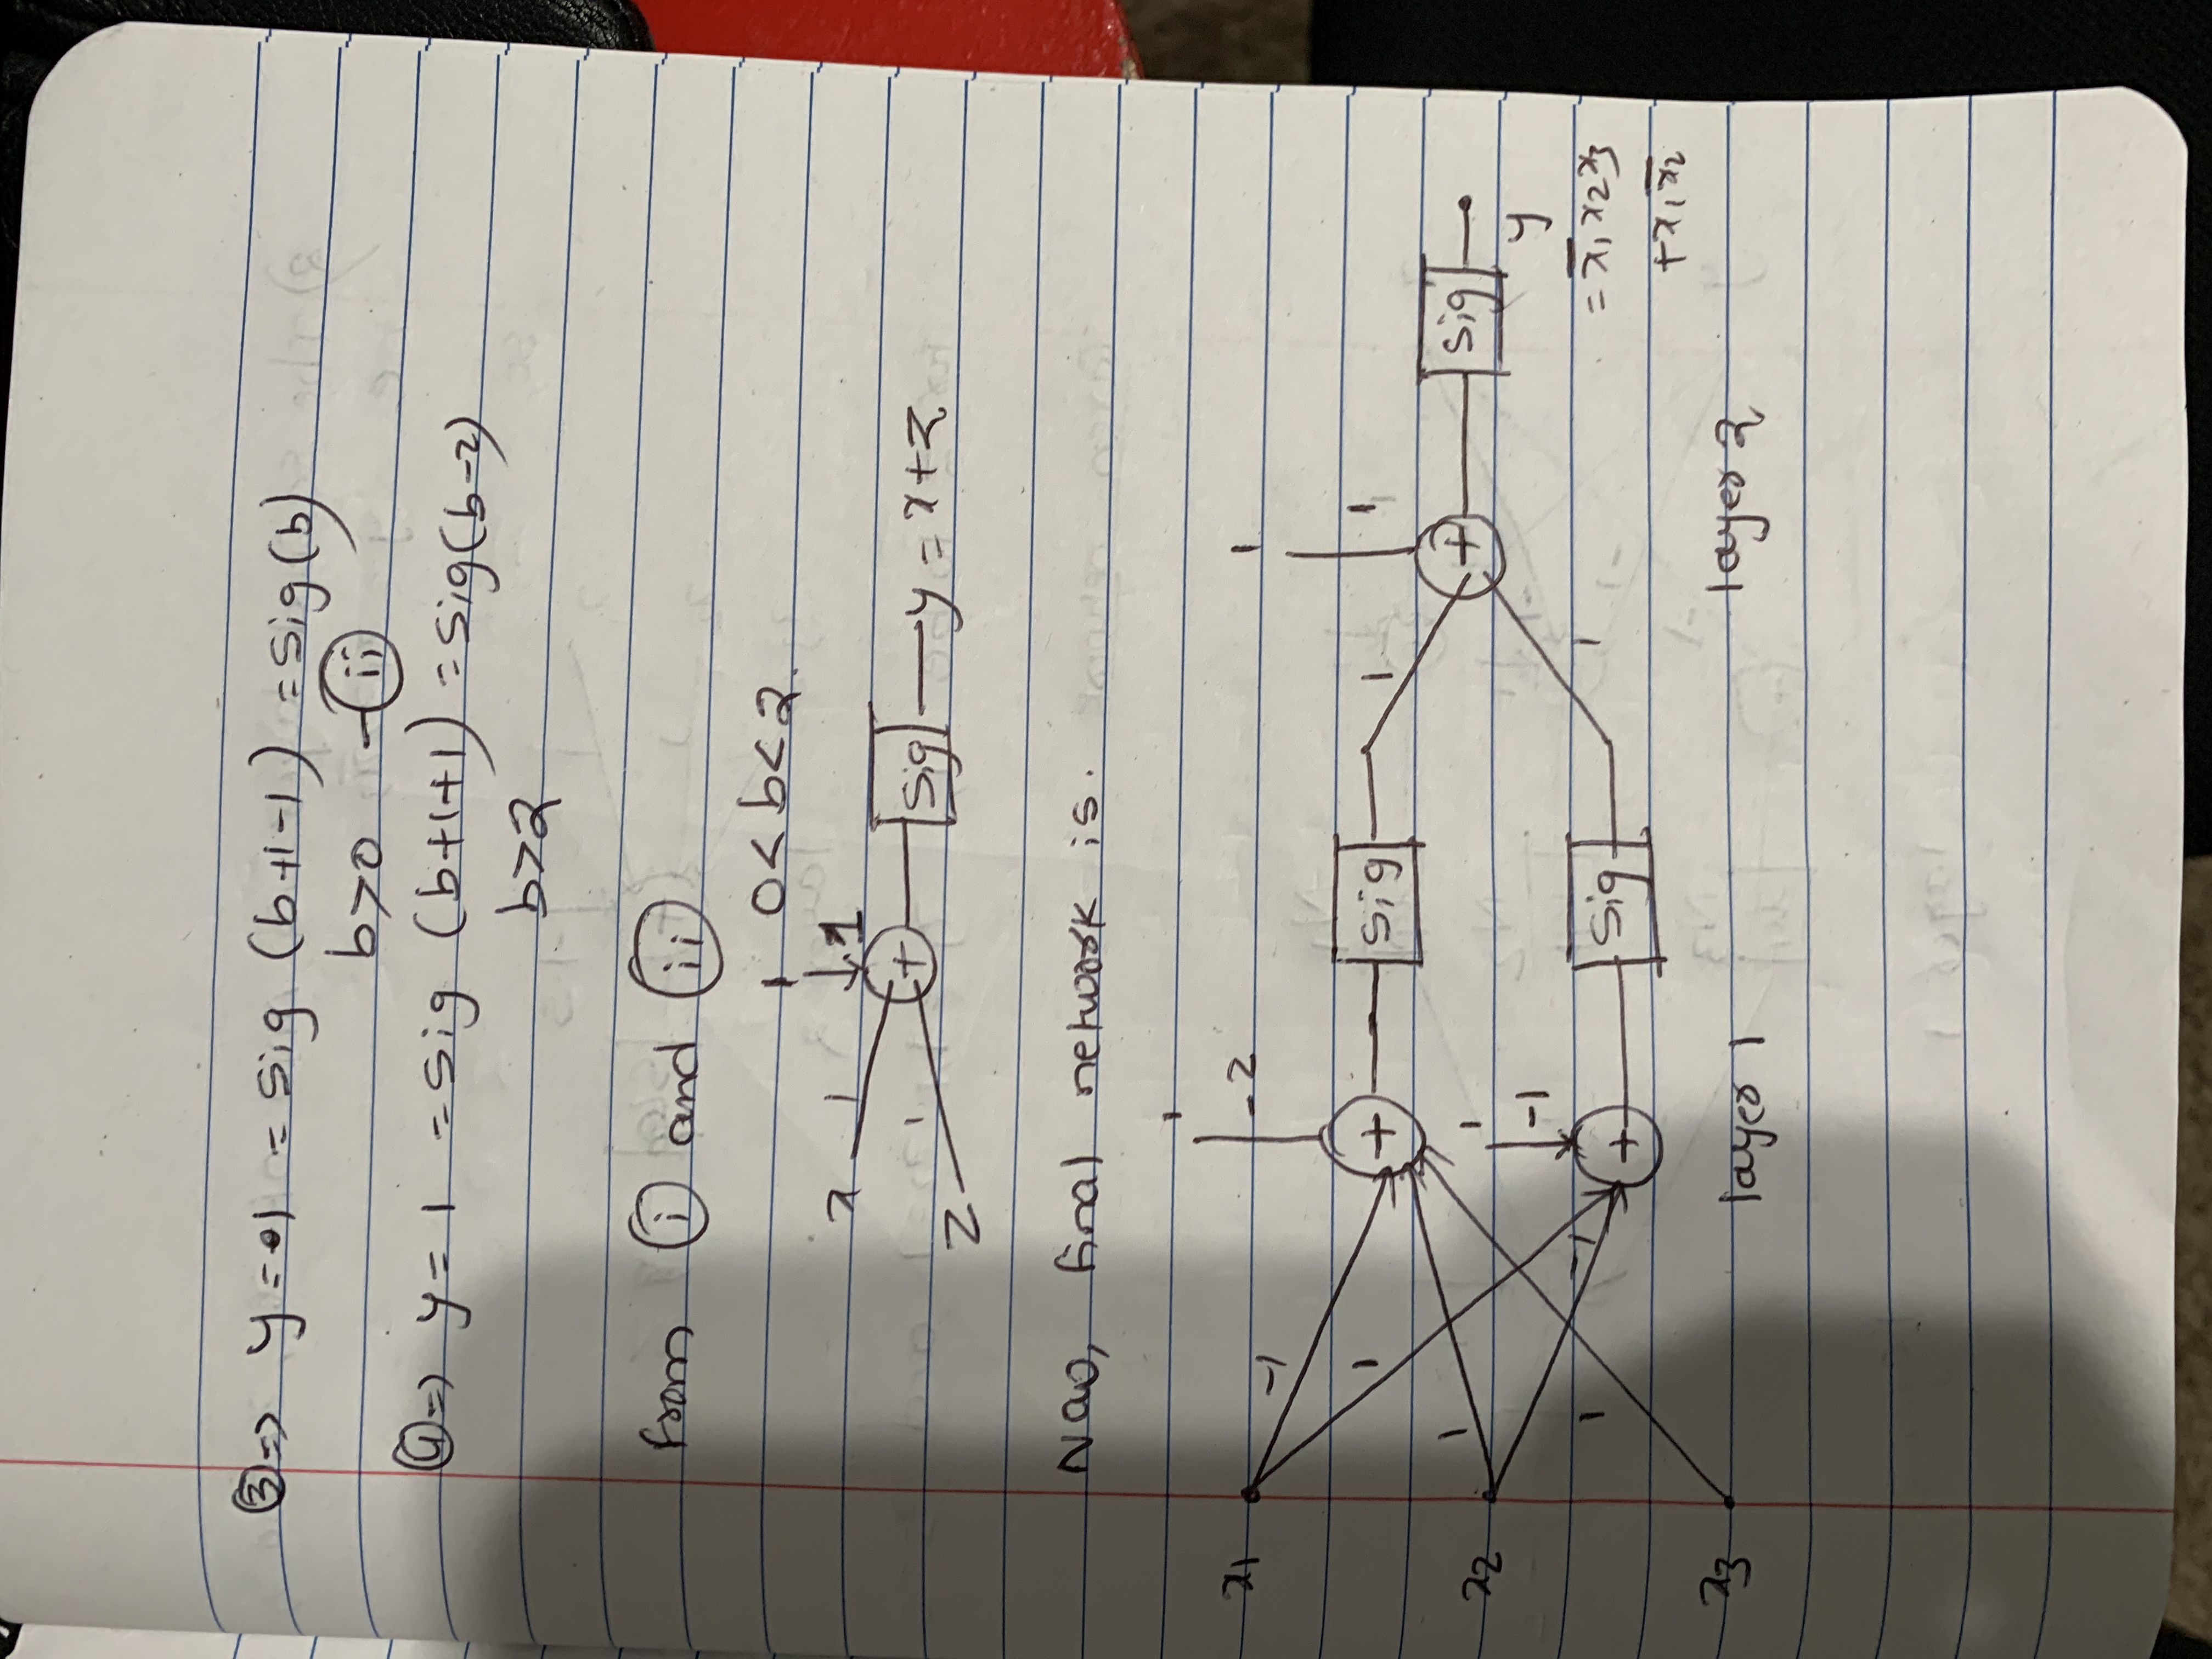 ③=> y=1 = sig (b+1-1) = sig(b)
b>0 -ⓘⓘ
④=> y= 1 = sig (b+1+1) = sig(b-2)
b>2
from ⓘ and ⓘⓘ
1 0<b<2.
x 1 ↓1
+ sig y = x+z
z 1
Now, final network is.
1
-2
x1 -1 1
1 + sig 1 1
x2 1 1 + sig
-1 y
1 -1 + sig 1 = x̄1 x2 x3
+ x1 x̄2
x3 layer 1 layer 2